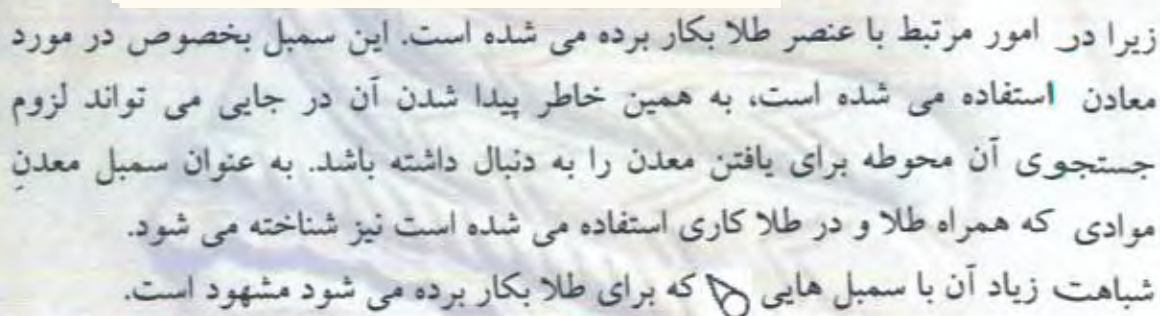 زیرا در امور مرتبط با عنصر طلا بکار برده می شده است. این سمبل بخصوص در مورد
معادن استفاده می شده است، به همین خاطر پیدا شدن آن در جایی می تواند لزوم
جستجوی آن محوطه برای یافتن معدن را به دنبال داشته باشد. به عنوان سمبل معدنِ
موادی که همراه طلا و در طلا کاری استفاده می شده است نیز شناخته می شود.
شباهت زیاد آن با سمبل هایی که برای طلا بکار برده می شود مشهود است.